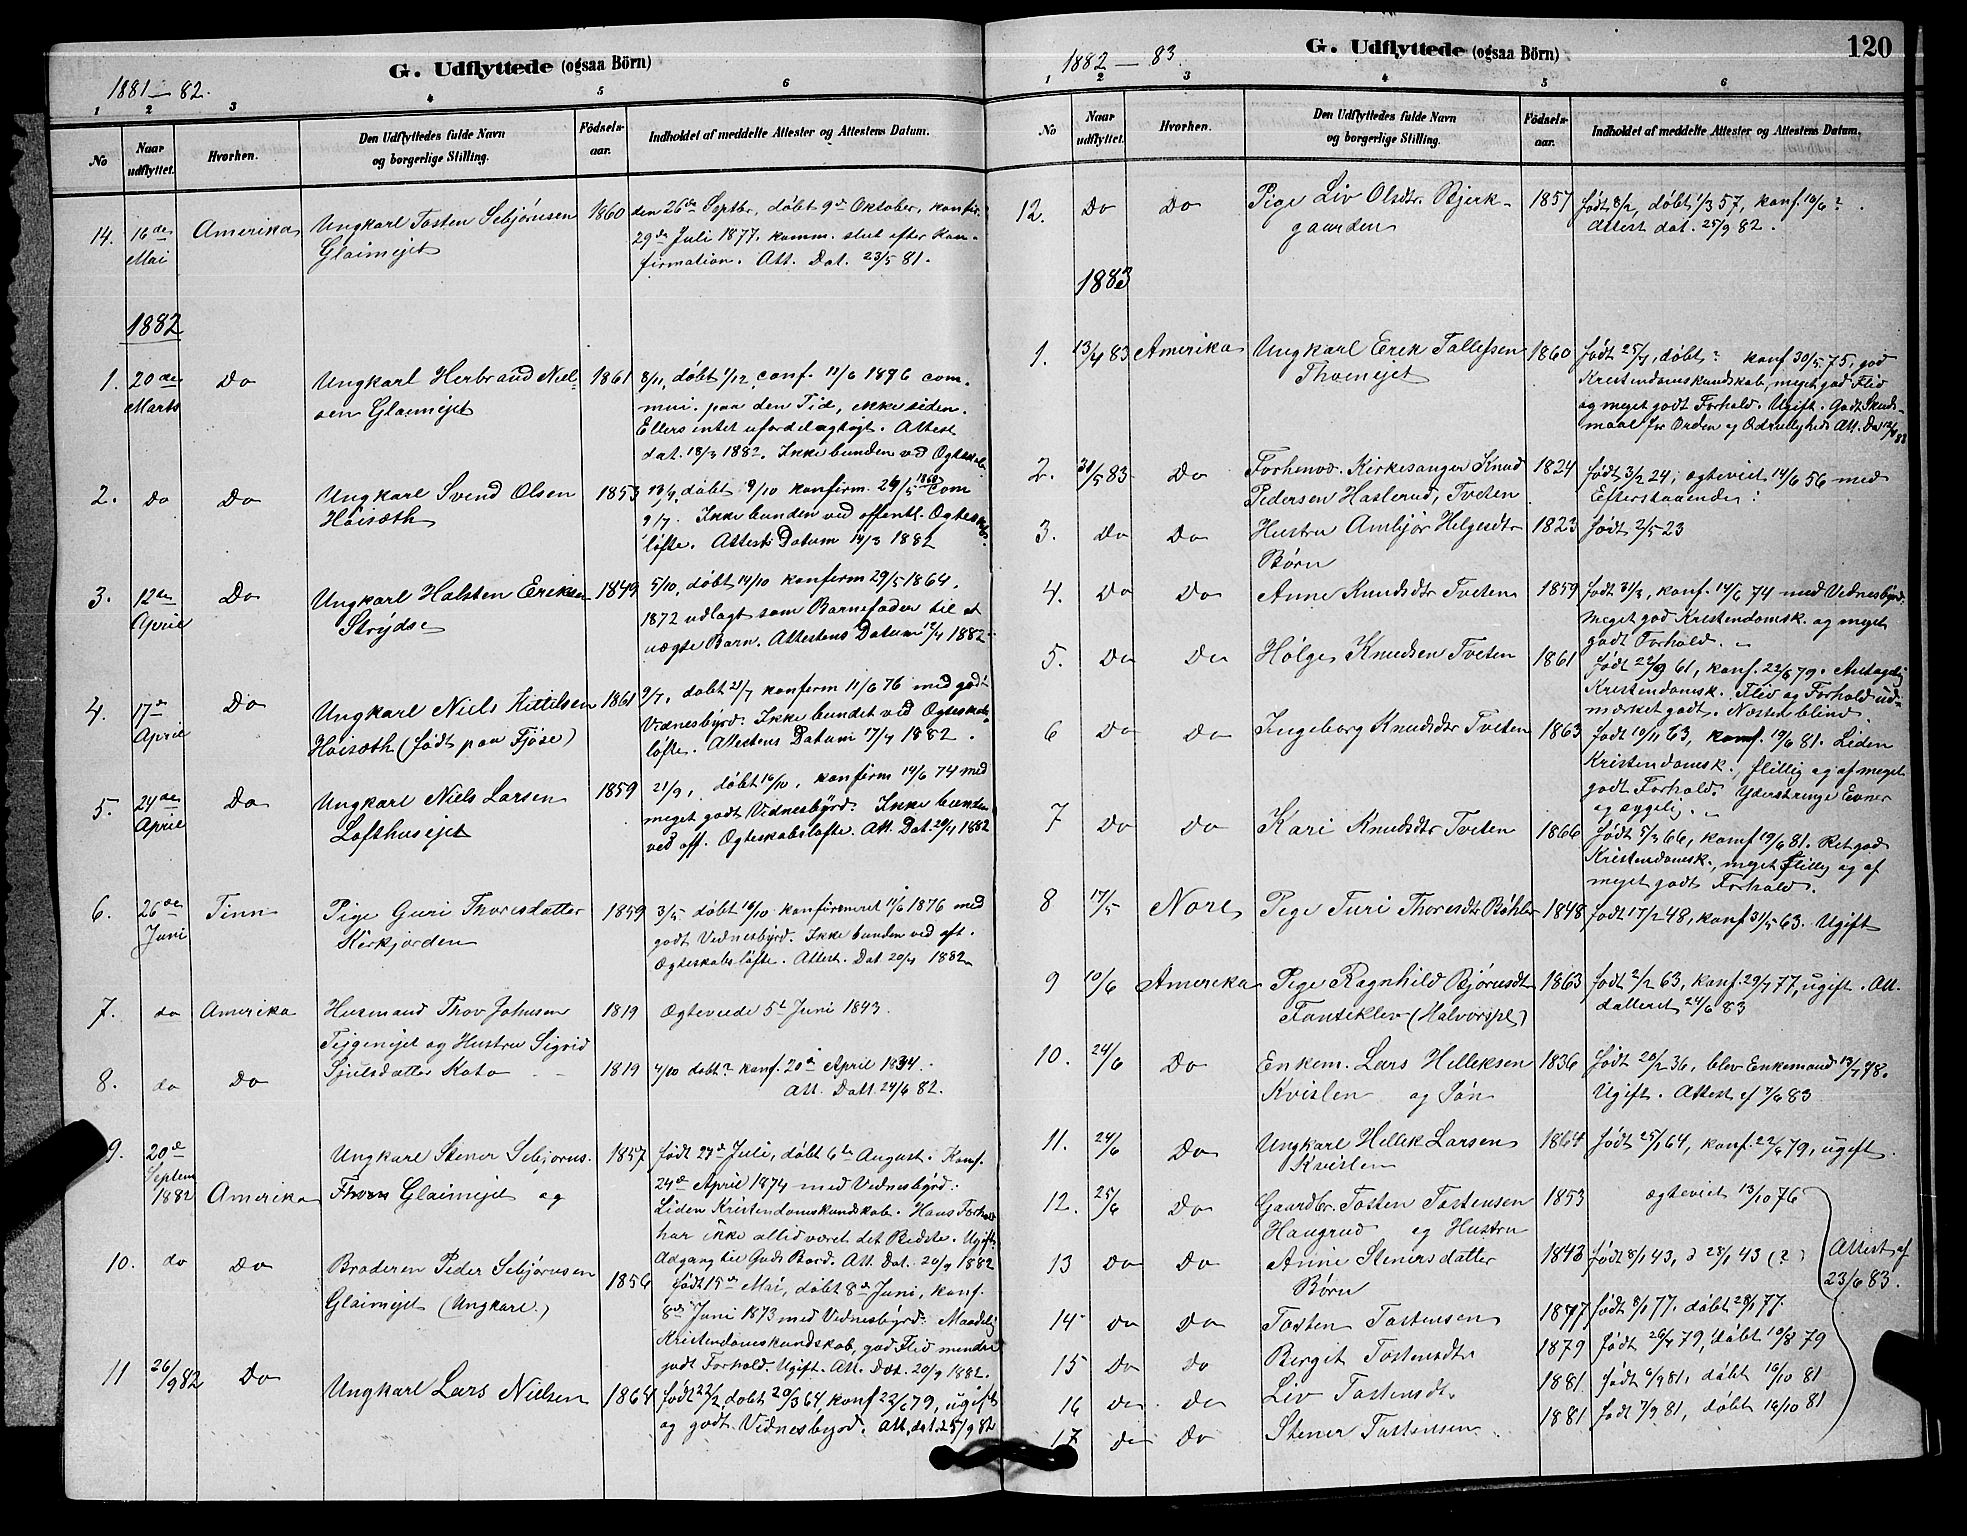 G. Udflyttede (ogsaa Börn)
1881—82.
1 2 3 4 5 6
No
Naar udflyttet.
Hvorhen.
Den Udflyttedes fulde Navn
og borgerlige Stilling.
Födsels-
aar.
Indholdet af meddelte Attester og Attestens Datum.
14. 16de Amerika Ungkarl Tosten Sebjørnsen 1860 den 26de Septbr, døbt 9de Oktober, konfir.
Mai Glaimejet 29de Juli 1877. komm. slut efter Kon-
firmation. Att. Dat. 23/5 81.
1882
1. 20de Do Ungkarl Herbrand Niel- 1861 8/11, døbt 1/12, conf. 11/6 1876 com-
Marts sen Glaimejet muni. paa den Tid, ikke siden.
Ellers intet ufordelagtigt. Attest
dat. 18/3 1882. Ikke bunden ved Ogteskab.
2. do Do Ungkarl Svend Olsen 1853 13/9, døbt 9/10 konfirm. 29/5 com
Høisæth 9/7. Ikke bunden ved offentl. Ogtesk
løfte. Attests Datum 14/3 1882
3. 12te Do Ungkarl Halsten Eriksen 1849 5/10, døbt 14/10 konfirm 29/5 1864.
April Strydse 1872 udlagt som Barnefader til et
uægte Barn. Attestens Datum 12/4 1882
4. 17de Do Ungkarl Niels Kittilsen 1861 9/7, døbt 21/7 konfirm 11/6 76 med godt
April Høisæth (født paa Fjøse) Vidnesbyrd. Ikke bundet ved Ogteskabs
løfte. Attestens Datum 17/4 1882.
5. 24de Do Ungkarl Niels Larsen 1859 21/9, døbt 16/10, konfirm 14/6 74 med
April Lofthusejet meget godt Vidnesbyrd. Ikke bunden
ved off. Ogteskabsløfte. Att. Dat. 20/4 1882
6. 26de Tinn Pige Guri Thoresdatter 1859 3/5 døbt 16/10 konfirmeret 11/6 1876 med
Juni Kirkjorden godt Vidnesbyrd. Ikke bunden ved oft.
Ogteskabsløfte. Attest. Dat 20/4 1882
7. do Amerika Husmand Thov Johnsen 1819 Ogteviede 5t Juni 1843.
Tejgenejet og Hustru Sigrid
8. do Do Sjulsdatter Kato 1819 4/10 døbt? konf. 20de April 1834.
Att. Datt 24/6 82.
9. 20de Ungkarl Stener Sebjørns. 1857 født 27de Juli, døbt 6te August. Konf.
Septem 24de April 1874 med Vidnesbyrd:
1882 Amerika Glaimejet og Liden Kristendomskundskab. Hans Forhold
har ikke altid været det Bedste. Ugift
Adgang til Guds Bord. Att. Dat. 20/9 1882
10. do Do Broderen Peder Sebjørnsen 1856 født 15de Mai, døbt 8de Juni, konf.
Glaimejet (Ungkarl.) 8de Juni 1873 med Vidnesbyrd: Maadelig
Kristendomskundskab, god Flid
godt Forhold. Ugift. Att. Dat. 20/9 1882.
11 26/9 82 Do Ungkarl Lars Nielsen 1864 født 22/2, døbt 20/3 64, konf 22/6 79, ugift
og godt Vidnesbyrd. Att. dat. 25/9 82
G. Udflyttede (ogsaa Börn)
120
1882—83.
1 2 3 4 5 6
No
Naar
udflyttet.
Hvorhen.
Den Udflyttedes fulde Navn
og borgerlige Stilling.
Födsels-
aar.
Indholdet af meddelte Attester og Attestens Datum.
12. Do Do Pige Liv Olsdtr. Bjerk- 1857 født 8/2, døbt 1/3 57, konf. 16/6?
gaarden Attest dat. 25/9 82.
1883
1. 13/4 83 Amerika Ungkarl Erik Tollefsen 1860 født 25/7, døbt? konf 30/5 75, god
Thoenejet Kristendomskundskab, meget god Flid
og meget godt Forhold. Ugift. Godt Skuds-
maal for Orden og Ædruelighed. Att. Dat 12/4 83
2. 30/5 83 Do Forhenv. Kirkesanger Knud 1824 født 3/2 24, ogteviet 14/6 56 med
Pedersen Haslerud, Tveten Efterstaaende:
3. Do Do Hustru Ambjør Helgesdtr 1823 født 2/5 23
Børn
4. Do Do Anne Knudsdtr Tveten 1859 født 31/3, konf. 14/6 74 med Vidnesbyrd:
Meget god Kristendomsk. og meget
godt Forhold.
5. Do Do Helge Knudsen Tveten 1861 født 22/9 61, konf. 22/6 79. Antagelig
Kristendomsk. Flid og Forhold ud-
mærket godt. Næsten blind.
6 Do Do Ingeborg Knudsdtr Tveten 1863 født 10/11 63, konf. 19/6 81. Liden
Kristendomsk., flittig og af meget
godt Forhold. Yderst ringe Evner
og sygelig.
7 Do Do Kari Knudsdtr Tveten 1866 født 5/3 66, konf 19/6 81. Ret god
Kristendomsk., meget flittig og af
meget godt Forhold.
8 17/5 Nore Pige Turi Thoresdtr Bøhler 1848 født 17/2 48, konf 31/5 63. Ugift
9 10/6 Amerika Pige Ragnhild Bjørnsdtr 1863 født 2/2 63, konf. 29/7 77, ugift. Att.
Fonteklev (Halvorspl) datteret 24/6 83
10. 24/6 Do Enkem. Lars Helleksen 1836 født 20/2 36, blev Enkemand 13/7 78.
Kvislen og Søn Ugift. Attest af 7/6 83
11. 24/6 Do Ungkarl Hellik Larsen 1864 født 25/1 64, konf. 22/6 79, ugift.
Kvislen
12. 25/6 Do Gaardbr. Tosten Tostensen 1853 ogteviet 13/10 76
Haugrud og Hustru
13 Do Do Anne Stenersdatter 1843 født 8/1 43, d 28/1 43 (?) Attest af
Børn 23/6 83.
14 do Do Tosten Tostensen 1877 født 8/1 77. døbt 28/1 77.
15 Do do Bergit Tostensdtr 1879 født 26/7 79, døbt 10/8 79
16 do do Liv Tostensdtr 1881 født 6/9 81, døbt 16/10 81
17 do Do Stener Tostensen 1881 født 7/9 81, døbt 16/10 81